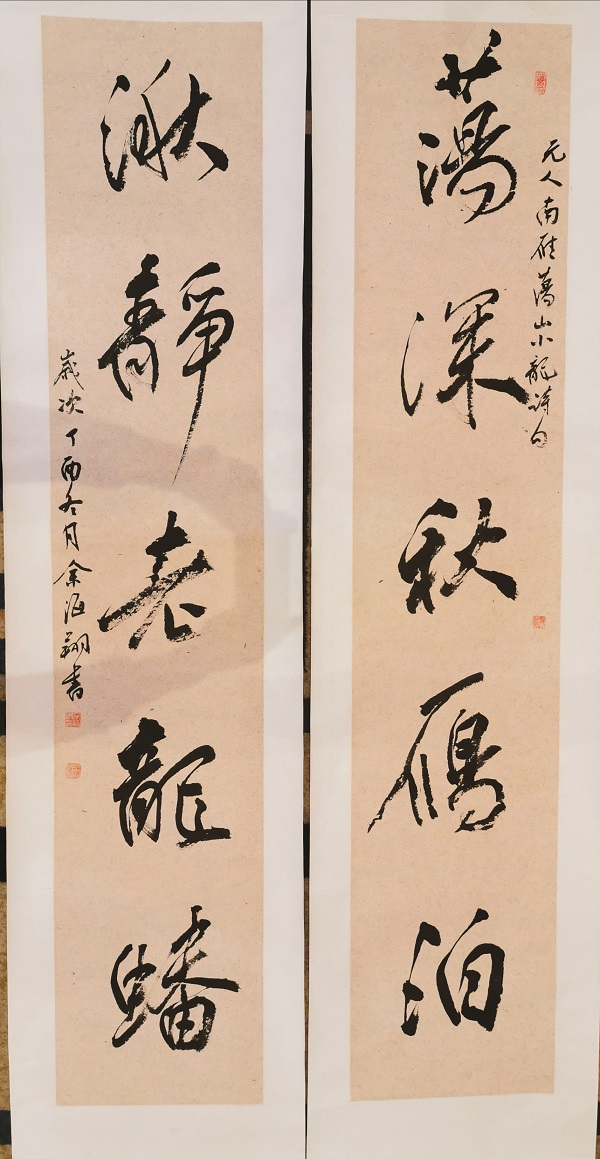 元人南雁蕩山小龍詩句
蕩深秋鴈泊
湫靜老龍蟠
歲次丁酉冬月余海翔書